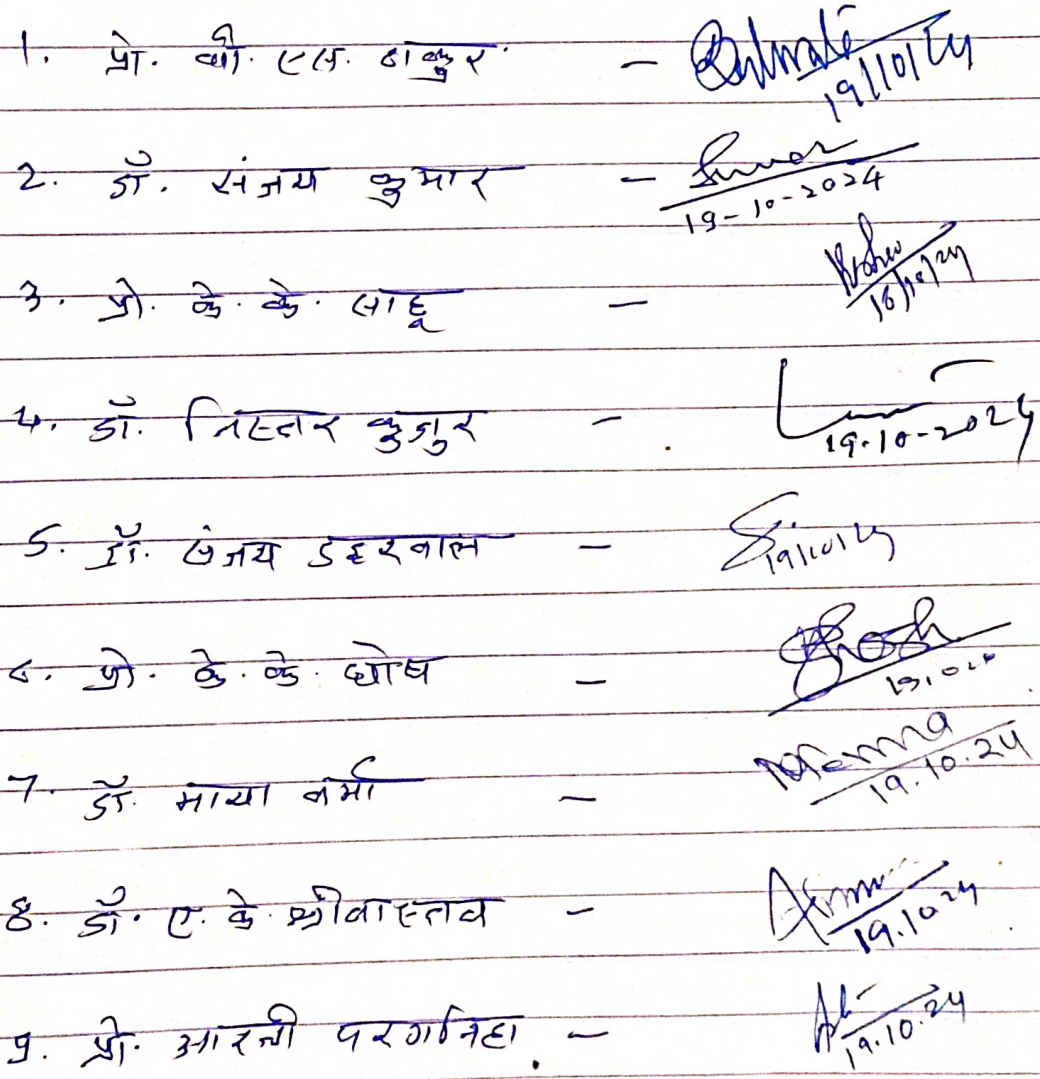 1. प्रो. बी. एस. ठाकुर - 19/10/24
2. डॉ. संजय कुमार - 19-10-2024
3. प्रो. के. के. साहू -
4. डॉ. निस्तर कुजुर - 19.10-2024
5. डॉ. संजय डहरवाल - 19/10/24
6. प्रो. के. के. घोष - Ghosh
7. डॉ. माया वर्मा - 19.10.24
8. डॉ. ए. के. श्रीवास्तव - 19.10.24
9. प्रो. आरती परगनिहा - 19.10.24